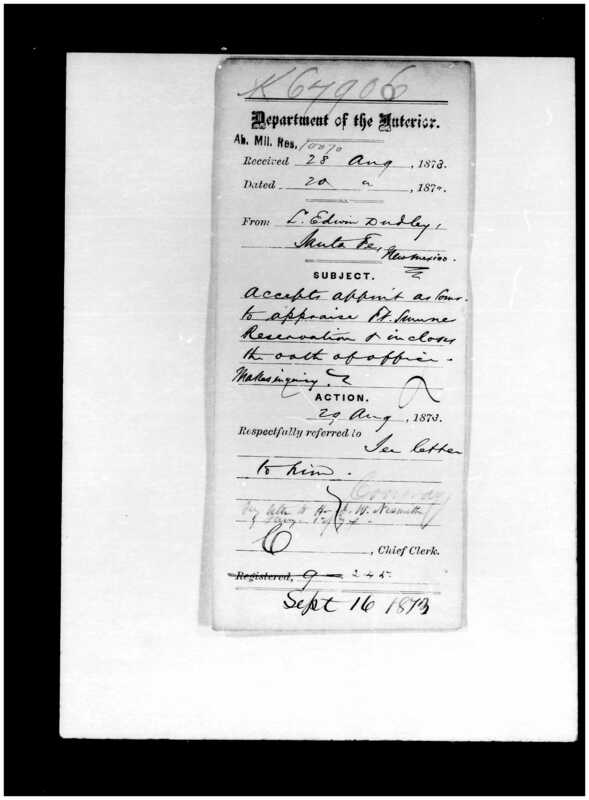 K 67906
Department of the Interior.
Ab. Mil. Res. 10070
Received 28 Aug, 1873.
Dated 20 " , 187 .
From L. Edwin Dudley,
Santa Fe,
New Mexico.
SUBJECT.
Accepts appmt as Comr.
to appraise Ft. Sumner
Reservation & incloses
the oath of office.
Makes inquiry.
ACTION.
29 Aug, 1873.
Respectfully referred to
See letter
to him.
Conway
W. Nesmith
C , Chief Clerk.
Registered, 9 — 245.
Sept 16 1873